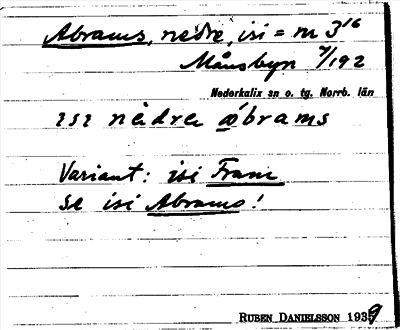 Abrams, nedre, isi = nr 3¹⁶
Månsbyn 7/192
Nederkalix sn o. tg. Norrb. län
ısı nèdrɐ ábrams
Variant: isi Fram
Se isi Abrams!
RUBEN DANIELSSON 1939